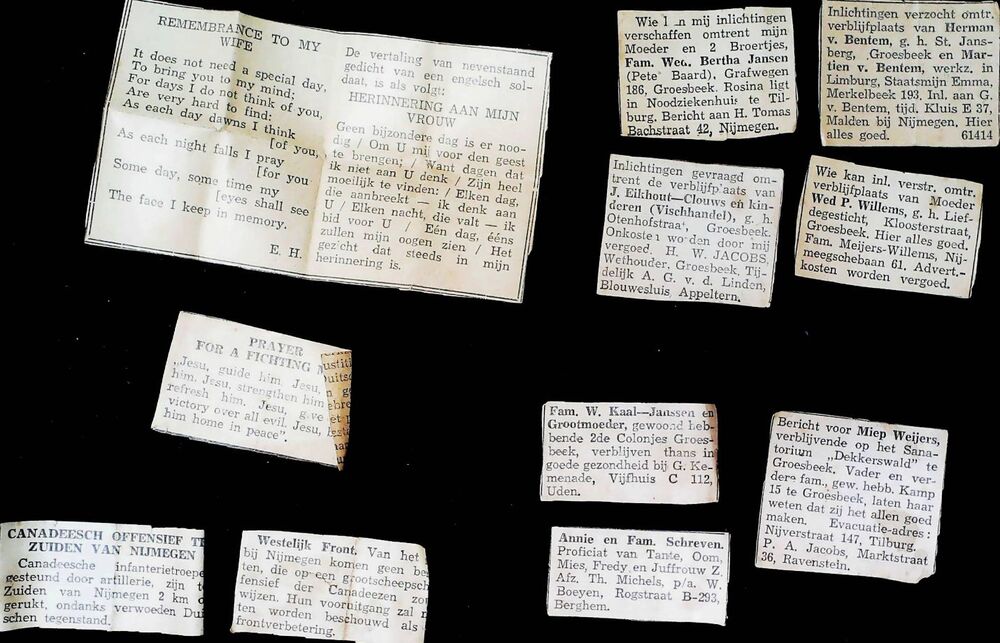 REMEMBRANCE TO MY
WIFE
It does not need a special day,
To bring you to my mind;
For days I do not think of you,
Are very hard to find:
As each day dawns I think
[of you,
As each night falls I pray
[for you
Some day, some time my
[eyes shall see
The face I keep in memory.
E. H.
De vertaling van nevenstaand
gedicht van een engelsch sol-
daat, is als volgt:
HERINNERING AAN MIJN
VROUW
Geen bijzondere dag is er noo-
dig / Om U mij voor den geest
te brengen; / Want dagen dat
ik niet aan U denk / Zijn heel
moeilijk te vinden: / Elken dag,
die aanbreekt — ik denk aan
U / Elken nacht, die valt — ik
bid voor U / Eén dag, ééns
zullen mijn oogen zien / Het
gezicht dat steeds in mijn
herinnering is.
Wie mij inlichtingen
verschaffen omtrent mijn
Moeder en 2 Broertjes,
Fam. Wed. Bertha Jansen
(Pete Baard), Grafwegen
186, Groesbeek. Rosina ligt
in Noodziekenhuis te Til-
burg. Bericht aan H. Tomas
Bachstraat 42, Nijmegen.
Inlichtingen verzocht omtr.
verblijfplaats van Herman
v. Bentem, g. h. St. Jans-
berg, Groesbeek en Mar-
tien v. Bentem, werkz. in
Limburg, Staatsmijn Emma,
Merkelbeek 193. Inl. aan G.
v. Bentem, tijd. Kluis E 37,
Malden bij Nijmegen. Hier
alles goed. 61414
Inlichtingen gevraagd om-
trent de verblijfplaats van
J. Eikhout—Clouws en kin-
deren (Vischhandel), g. h.
Otenhofstraat, Groesbeek.
Onkosten worden door mij
vergoed. H. W. JACOBS,
Wethouder, Groesbeek, Tij-
delijk A. G. v. d. Linden,
Blouwesluis Appeltern.
Wie kan inl. verstr. omtr.
verblijfplaats van Moeder
Wed P. Willems, g. h. Lief-
degesticht, Kloosterstraat,
Groesbeek. Hier alles goed.
Fam. Meijers-Willems, Nij-
meegschebaan 61. Advert.-
kosten worden vergoed.
PRAYER
FOR A FIGHTING
„Jesu, guide him. Jesu,
him. Jesu, strengthen him
refresh him. Jesu, give
victory over all evil. Jesu,
him home in peace”.
Fam. W. Kaal—Janssen en
Grootmoeder, gewoond heb-
bende 2de Colonjes Groes-
beek, verblijven thans in
goede gezondheid bij G. Ke-
menade, Vijfhuis C 112,
Uden.
Bericht voor Miep Weijers,
verblijvende op het Sana-
torium „Dekkerswald” te
Groesbeek. Vader en ver-
dere fam., gew. hebb. Kamp
15 te Groesbeek, laten haar
weten dat zij het allen goed
maken. Evacuatie-adres:
Nijverstraat 147, Tilburg.
P. A. Jacobs, Marktstraat
36, Ravenstein.
CANADEESCH OFFENSIEF T
ZUIDEN VAN NIJMEGEN
Canadeesche infanterietroepe
gesteund door artillerie, zijn t
Zuiden van Nijmegen 2 km o
gerukt, ondanks verwoeden Dui
schen tegenstand.
Westelijk Front. Van het
bij Nijmegen komen geen be
ten, die op een grootscheepsch
fensief der Canadeezen zo
wijzen. Hun vooruitgang zal n
ten worden beschouwd als
frontverbetering.
Annie en Fam. Schreven.
Proficiat van Tante, Oom,
Mies, Fredy en Juffrouw Z.
Afz. Th. Michels, p/a. W.
Boeyen, Rogstraat B-293,
Berghem.